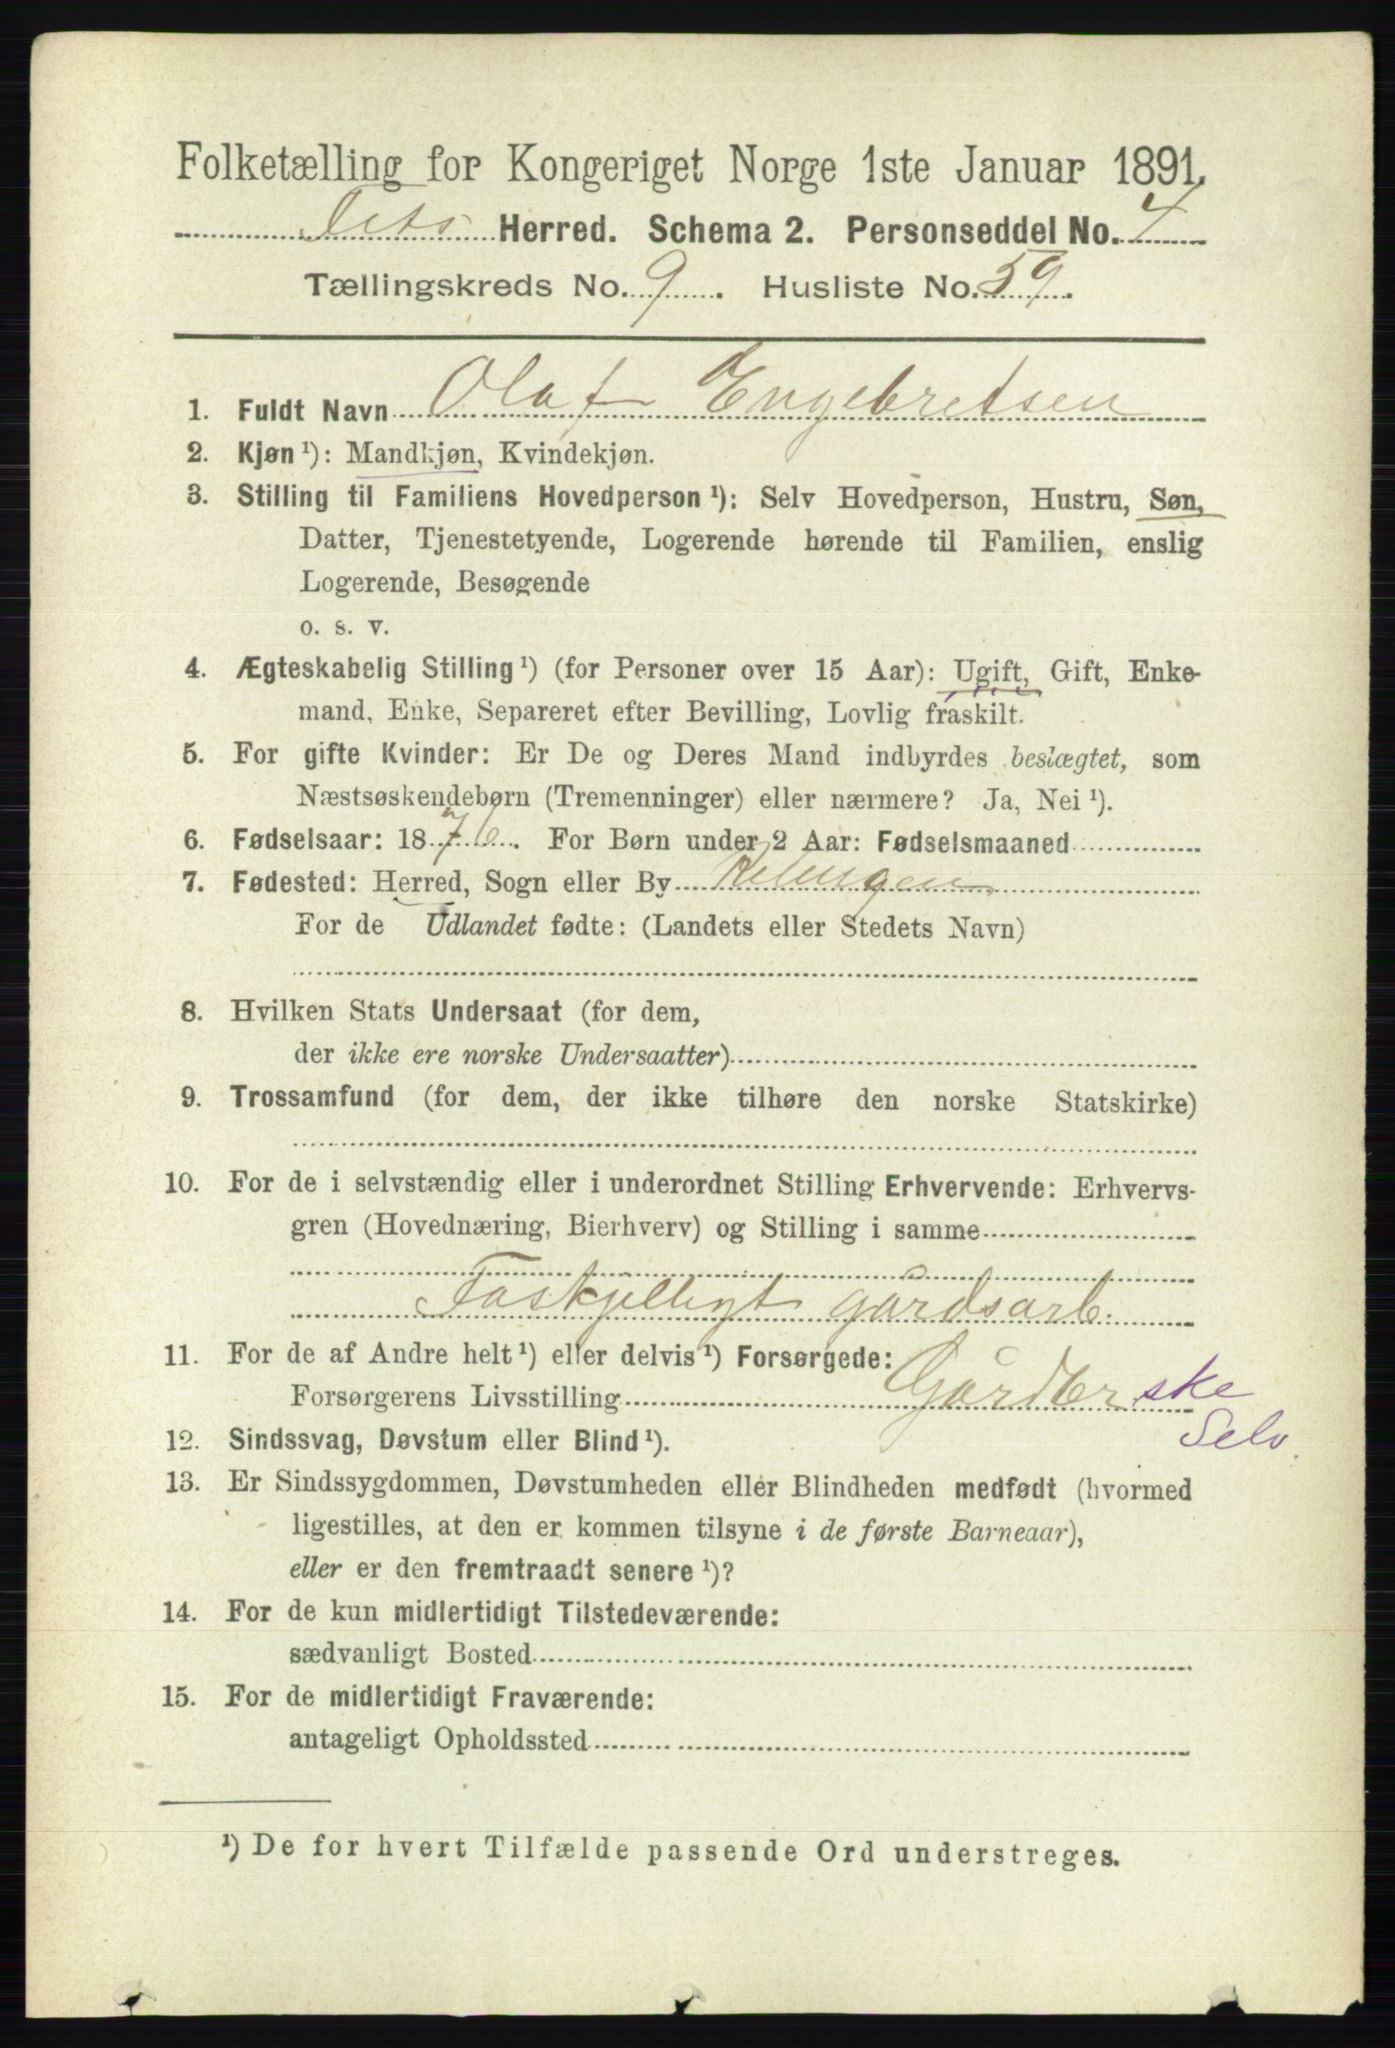 Folketælling for Kongeriget Norge 1ste Januar 1891.
Herred. Schema 2. Personseddel No. 4
Tællingskreds No. 9. Husliste No. 59.
1. Fuldt Navn Olaf Engebretsen
2. Kjøn ¹): Mandkjøn, Kvindekjøn.
3. Stilling til Familiens Hovedperson ¹): Selv Hovedperson, Hustru, Søn,
Datter, Tjenestetyende, Logerende hørende til Familien, enslig
Logerende, Besøgende
o. s. v.
4. Ægteskabelig Stilling ¹) (for Personer over 15 Aar): Ugift, Gift, Enke-
mand, Enke, Separeret efter Bevilling, Lovlig fraskilt.
5. For gifte Kvinder: Er De og Deres Mand indbyrdes beslægtet, som
Næstsøskendebørn (Tremenninger) eller nærmere? Ja, Nei ¹).
6. Fødselsaar: 1876. For Børn under 2 Aar: Fødselsmaaned
7. Fødested: Herred, Sogn eller By
For de Udlandet fødte: (Landets eller Stedets Navn)
8. Hvilken Stats Undersaat (for dem,
der ikke ere norske Undersaatter)
9. Trossamfund (for dem, der ikke tilhøre den norske Statskirke)
10. For de i selvstændig eller i underordnet Stilling Erhvervende: Erhvervs-
gren (Hovednæring, Bierhverv) og Stilling i samme
Foskjelligt gårdsarb.
11. For de af Andre helt ¹) eller delvis ¹) Forsørgede:
Forsørgerens Livsstilling Gårdbrske
Selv.
12. Sindssvag, Døvstum eller Blind ¹).
13. Er Sindssygdommen, Døvstumheden eller Blindheden medfødt (hvormed
ligestilles, at den er kommen tilsyne i de første Barneaar),
eller er den fremtraadt senere ¹)?
14. For de kun midlertidigt Tilstedeværende:
sædvanligt Bosted
15. For de midlertidigt Fraværende:
antageligt Opholdssted
¹) De for hvert Tilfælde passende Ord understreges.